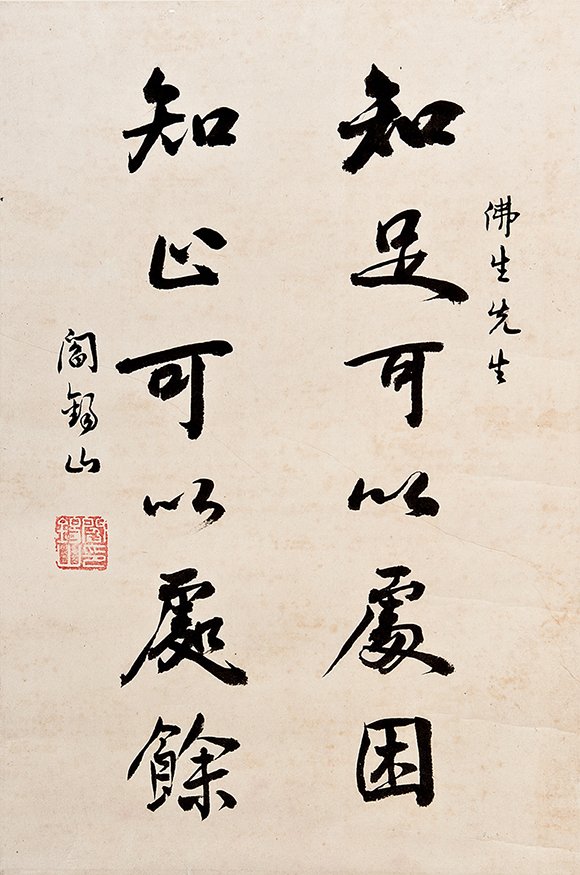 佛生先生
知足可以處困
知止可以處餘
閻錫山